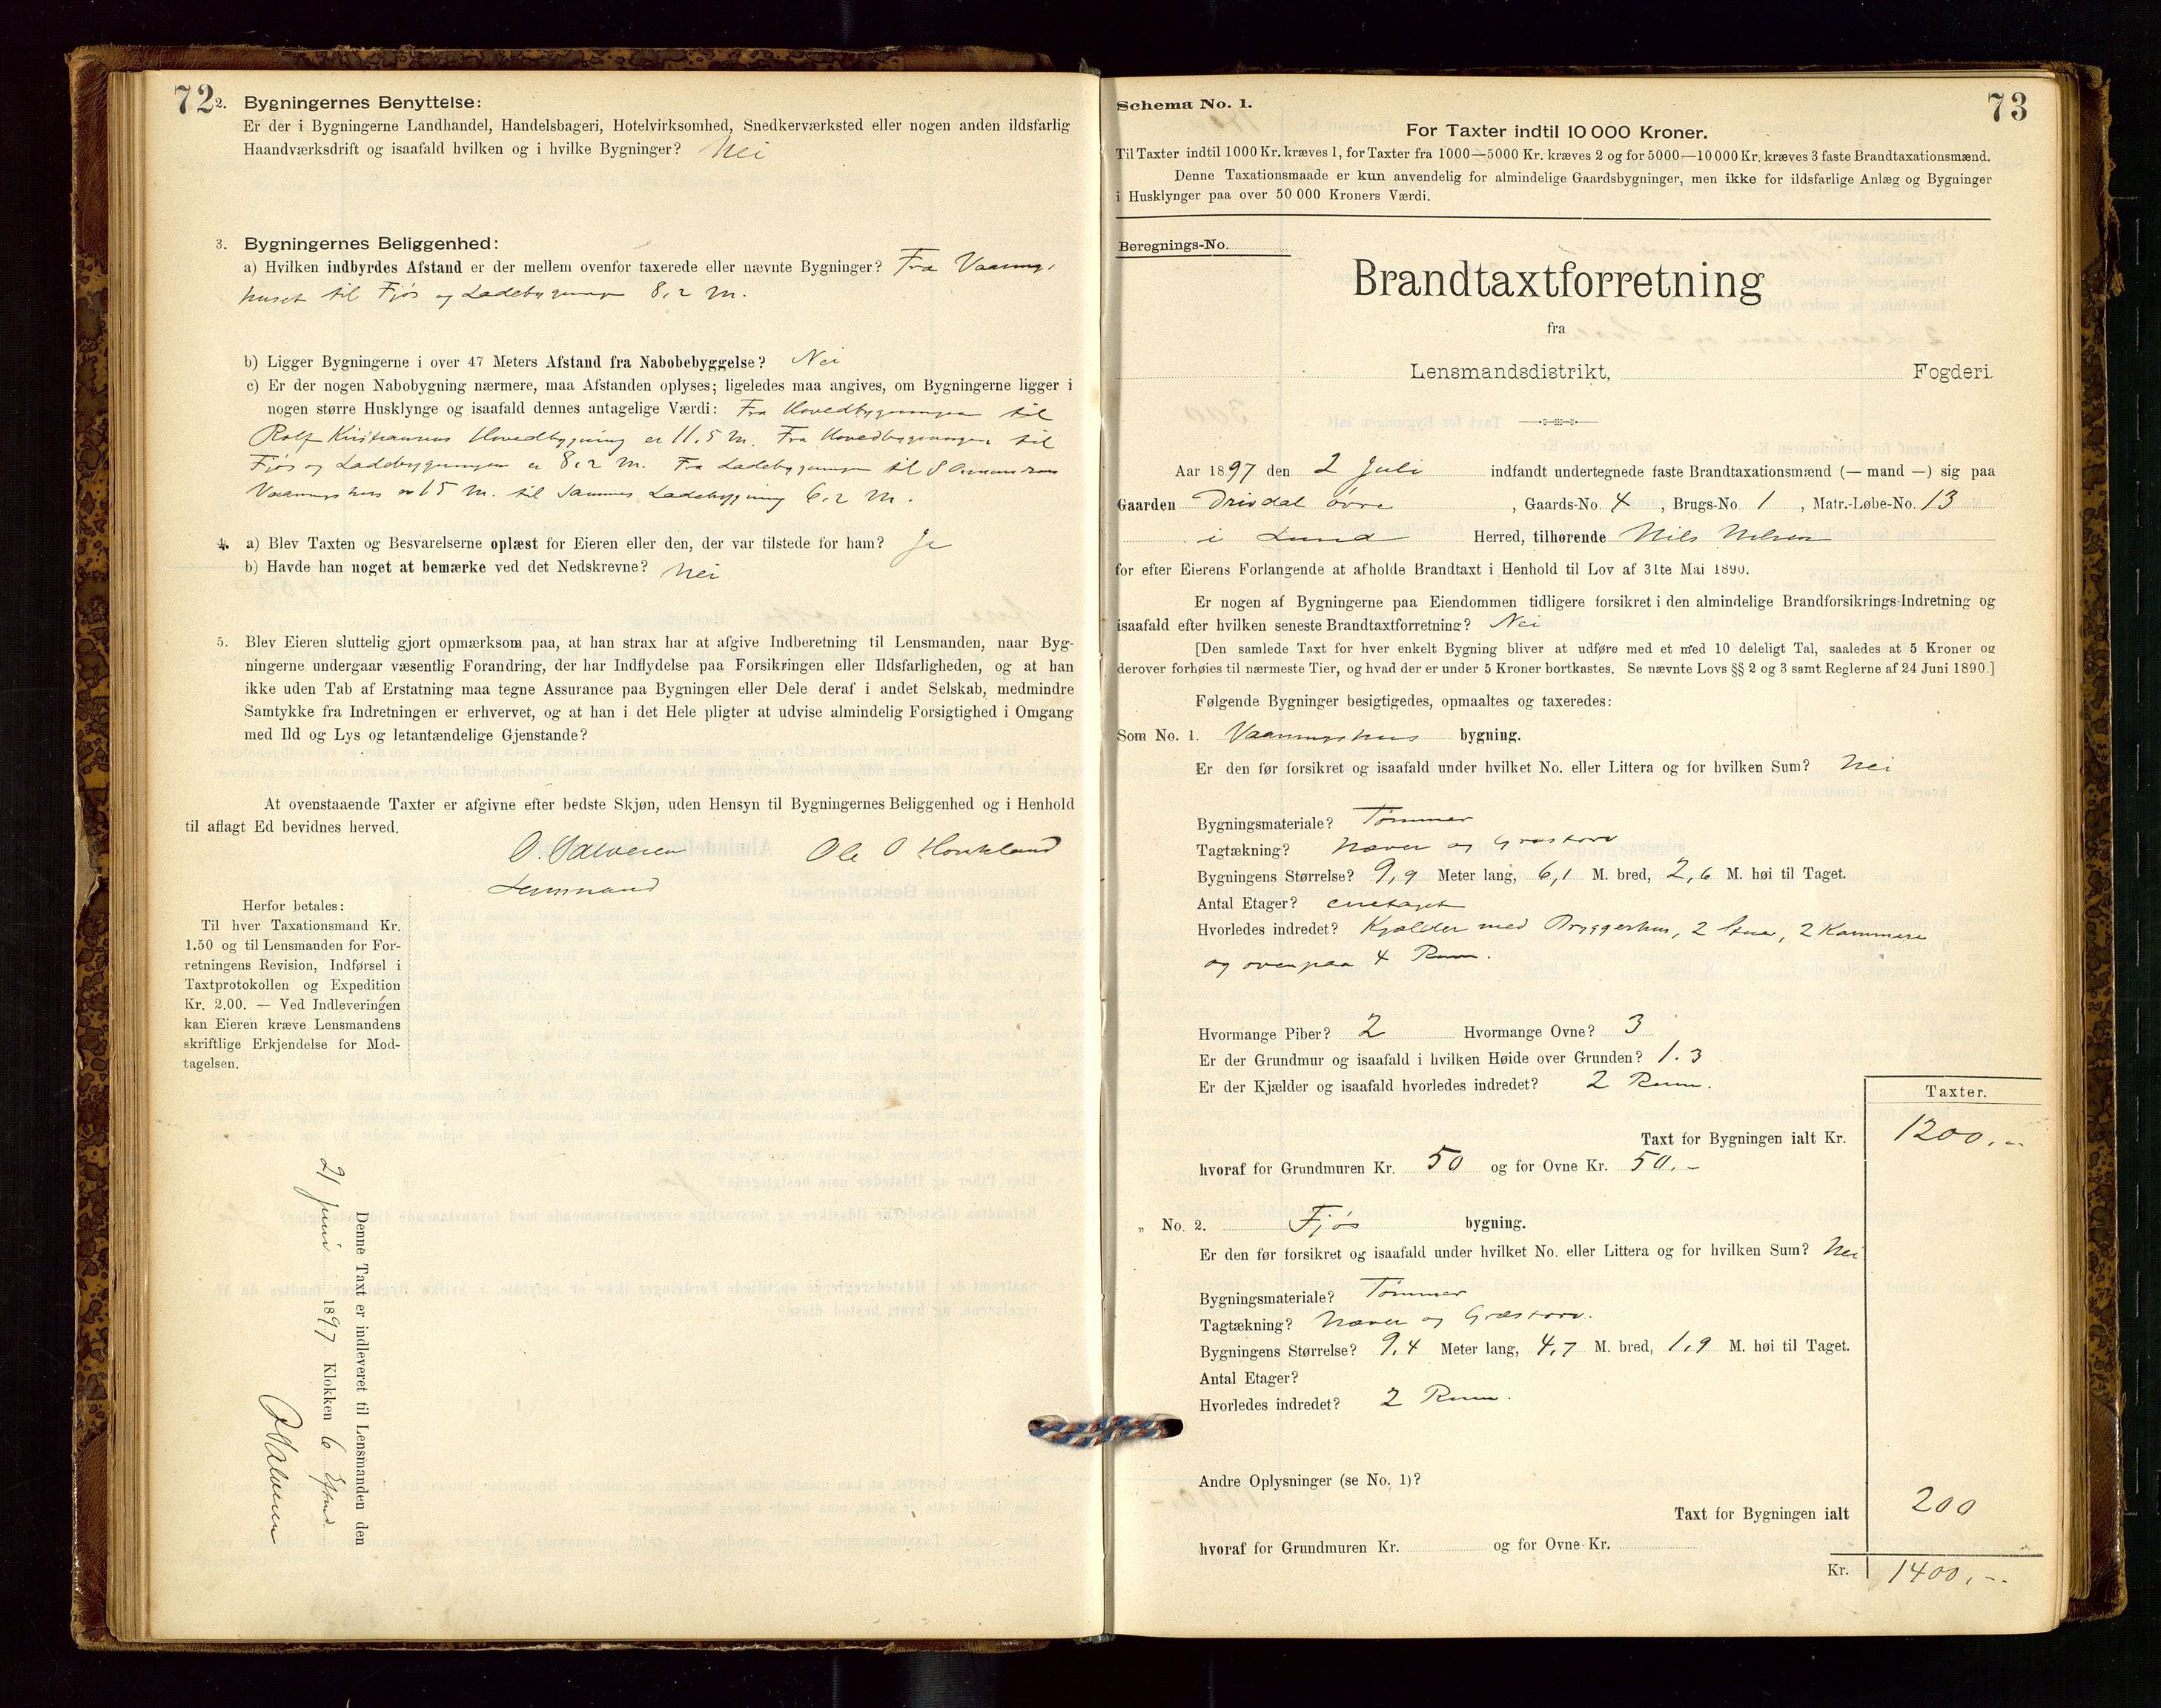 72
2. Bygningernes Benyttelse:
Er der i Bygningerne Landhandel, Handelsbageri, Hotelvirksomhed, Snedkerværksted eller nogen anden ildsfarlig
Haandværksdrift og isaafald hvilken og i hvilke Bygninger? Nei
3. Bygningernes Beliggenhed:
a) Hvilken indbyrdes Afstand er der mellem ovenfor taxerede eller nævnte Bygninger? Fra Vaanings
huset til Fjös og Ladebygningen 8,2 M.
b) Ligger Bygningerne i over 47 Meters Afstand fra Nabobebyggelse? Nei
c) Er der nogen Nabobygning nærmere, maa Afstanden oplyses; ligeledes maa angives, om Bygningerne ligger i
nogen større Husklynge og isaafald dennes antagelige Værdi: Fra Hovedbygningen til
Rolf Kristiansens Hovedbygning er 11,5 M. Fra Hovedbygningen til
Fjös og Ladebygningen er 8,2 M. Fra Ladebygningen til
Vaaningshus er 15 M. til sammes Ladebygning 6,2 M.
4. a) Blev Taxten og Besvarelserne oplæst for Eieren eller den, der var tilstede for ham? Ja
b) Havde han noget at bemærke ved det Nedskrevne? Nei
5. Blev Eieren sluttelig gjort opmærksom paa, at han strax har at afgive Indberetning til Lensmanden, naar Byg-
ningerne undergaar væsentlig Forandring, der har Indflydelse paa Forsikringen eller Ildsfarligheden, og at han
ikke uden Tab af Erstatning maa tegne Assurance paa Bygningen eller Dele deraf i andet Selskab, medmindre
Samtykke fra Indretningen er erhvervet, og at han i det Hele pligter at udvise almindelig Forsigtighed i Omgang
med Ild og Lys og letantændelige Gjenstande?
At ovenstaaende Taxter er afgivne efter bedste Skjøn, uden Hensyn til Bygningernes Beliggenhed og i Henhold
til aflagt Ed bevidnes herved.
O. Salvesen Ole O Haukland
Lensmand
Herfor betales:
Til hver Taxationsmand Kr.
1.50 og til Lensmanden for For-
retningens Revision, Indførsel i
Taxtprotokollen og Expedition
Kr. 2.00. — Ved Indleveringen
kan Eieren kræve Lensmandens
skriftlige Erkjendelse for Mod-
tagelsen.
Denne Taxt er indleveret til Lensmanden den
21 Juni 1897 Klokken 6
O Salvesen
73
Schema No. 1.
For Taxter indtil 10 000 Kroner.
Til Taxter indtil 1000 Kr. kræves 1, for Taxter fra 1000—5000 Kr. kræves 2 og for 5000—10 000 Kr. kræves 3 faste Brandtaxationsmænd.
Denne Taxationsmaade er kun anvendelig for almindelige Gaardsbygninger, men ikke for ildsfarlige Anlæg og Bygninger
i Husklynger paa over 50 000 Kroners Værdi.
Beregnings-No.
Brandtaxtforretning
fra
Lensmandsdistrikt, Fogderi.
Aar 1897 den 2 Juli indfandt undertegnede faste Brandtaxationsmænd (— mand —) sig paa
Gaarden Drivdal övre, Gaards-No. 4, Brugs-No. 1, Matr.-Løbe-No. 13
i Lund Herred, tilhørende Nils Nilsen
for efter Eierens Forlangende at afholde Brandtaxt i Henhold til Lov af 31te Mai 1890.
Er nogen af Bygningerne paa Eiendommen tidligere forsikret i den almindelige Brandforsikrings-Indretning og
isaafald efter hvilken seneste Brandtaxtforretning? Nei
[Den samlede Taxt for hver enkelt Bygning bliver at udføre med et med 10 deleligt Tal, saaledes at 5 Kroner og
derover forhøies til nærmeste Tier, og hvad der er under 5 Kroner bortkastes. Se nævnte Lovs §§ 2 og 3 samt Reglerne af 24 Juni 1890.]
Følgende Bygninger besigtigedes, opmaaltes og taxeredes:
Som No. 1. Vaaningshus bygning.
Er den før forsikret og isaafald under hvilket No. eller Littera og for hvilken Sum? Nei
Bygningsmateriale? Tömmer
Tagtækning? Næver og Græstorv
Bygningens Størrelse? 9,9 Meter lang, 6,1 M. bred, 2,6 M. høi til Taget.
Antal Etager? enetaget
Hvorledes indredet? Kjælder med Bryggerhus, 2 Stuer, 2 Kammere
og ovenpaa 4 Rum.
Hvormange Piber? 2 Hvormange Ovne? 3
Er der Grundmur og isaafald i hvilken Høide over Grunden? 1.3
Er der Kjælder og isaafald hvorledes indredet? 2 Rum.
Taxter.
Taxt for Bygningen ialt Kr. 1200,--
hvoraf for Grundmuren Kr. 50 og for Ovne Kr. 50.-
„ No. 2. Fjös bygning.
Er den før forsikret og isaafald under hvilket No. eller Littera og for hvilken Sum? Nei
Bygningsmateriale? Tömmer
Tagtækning? Næver og Græstorv.
Bygningens Størrelse? 9,4 Meter lang, 4,7 M. bred, 1,9 M. høi til Taget.
Antal Etager?
Hvorledes indredet? 2 Rum.
Andre Oplysninger (se No. 1)?
Taxt for Bygningen ialt 200
hvoraf for Grundmuren Kr. og for Ovne Kr.
Kr. 1400,--